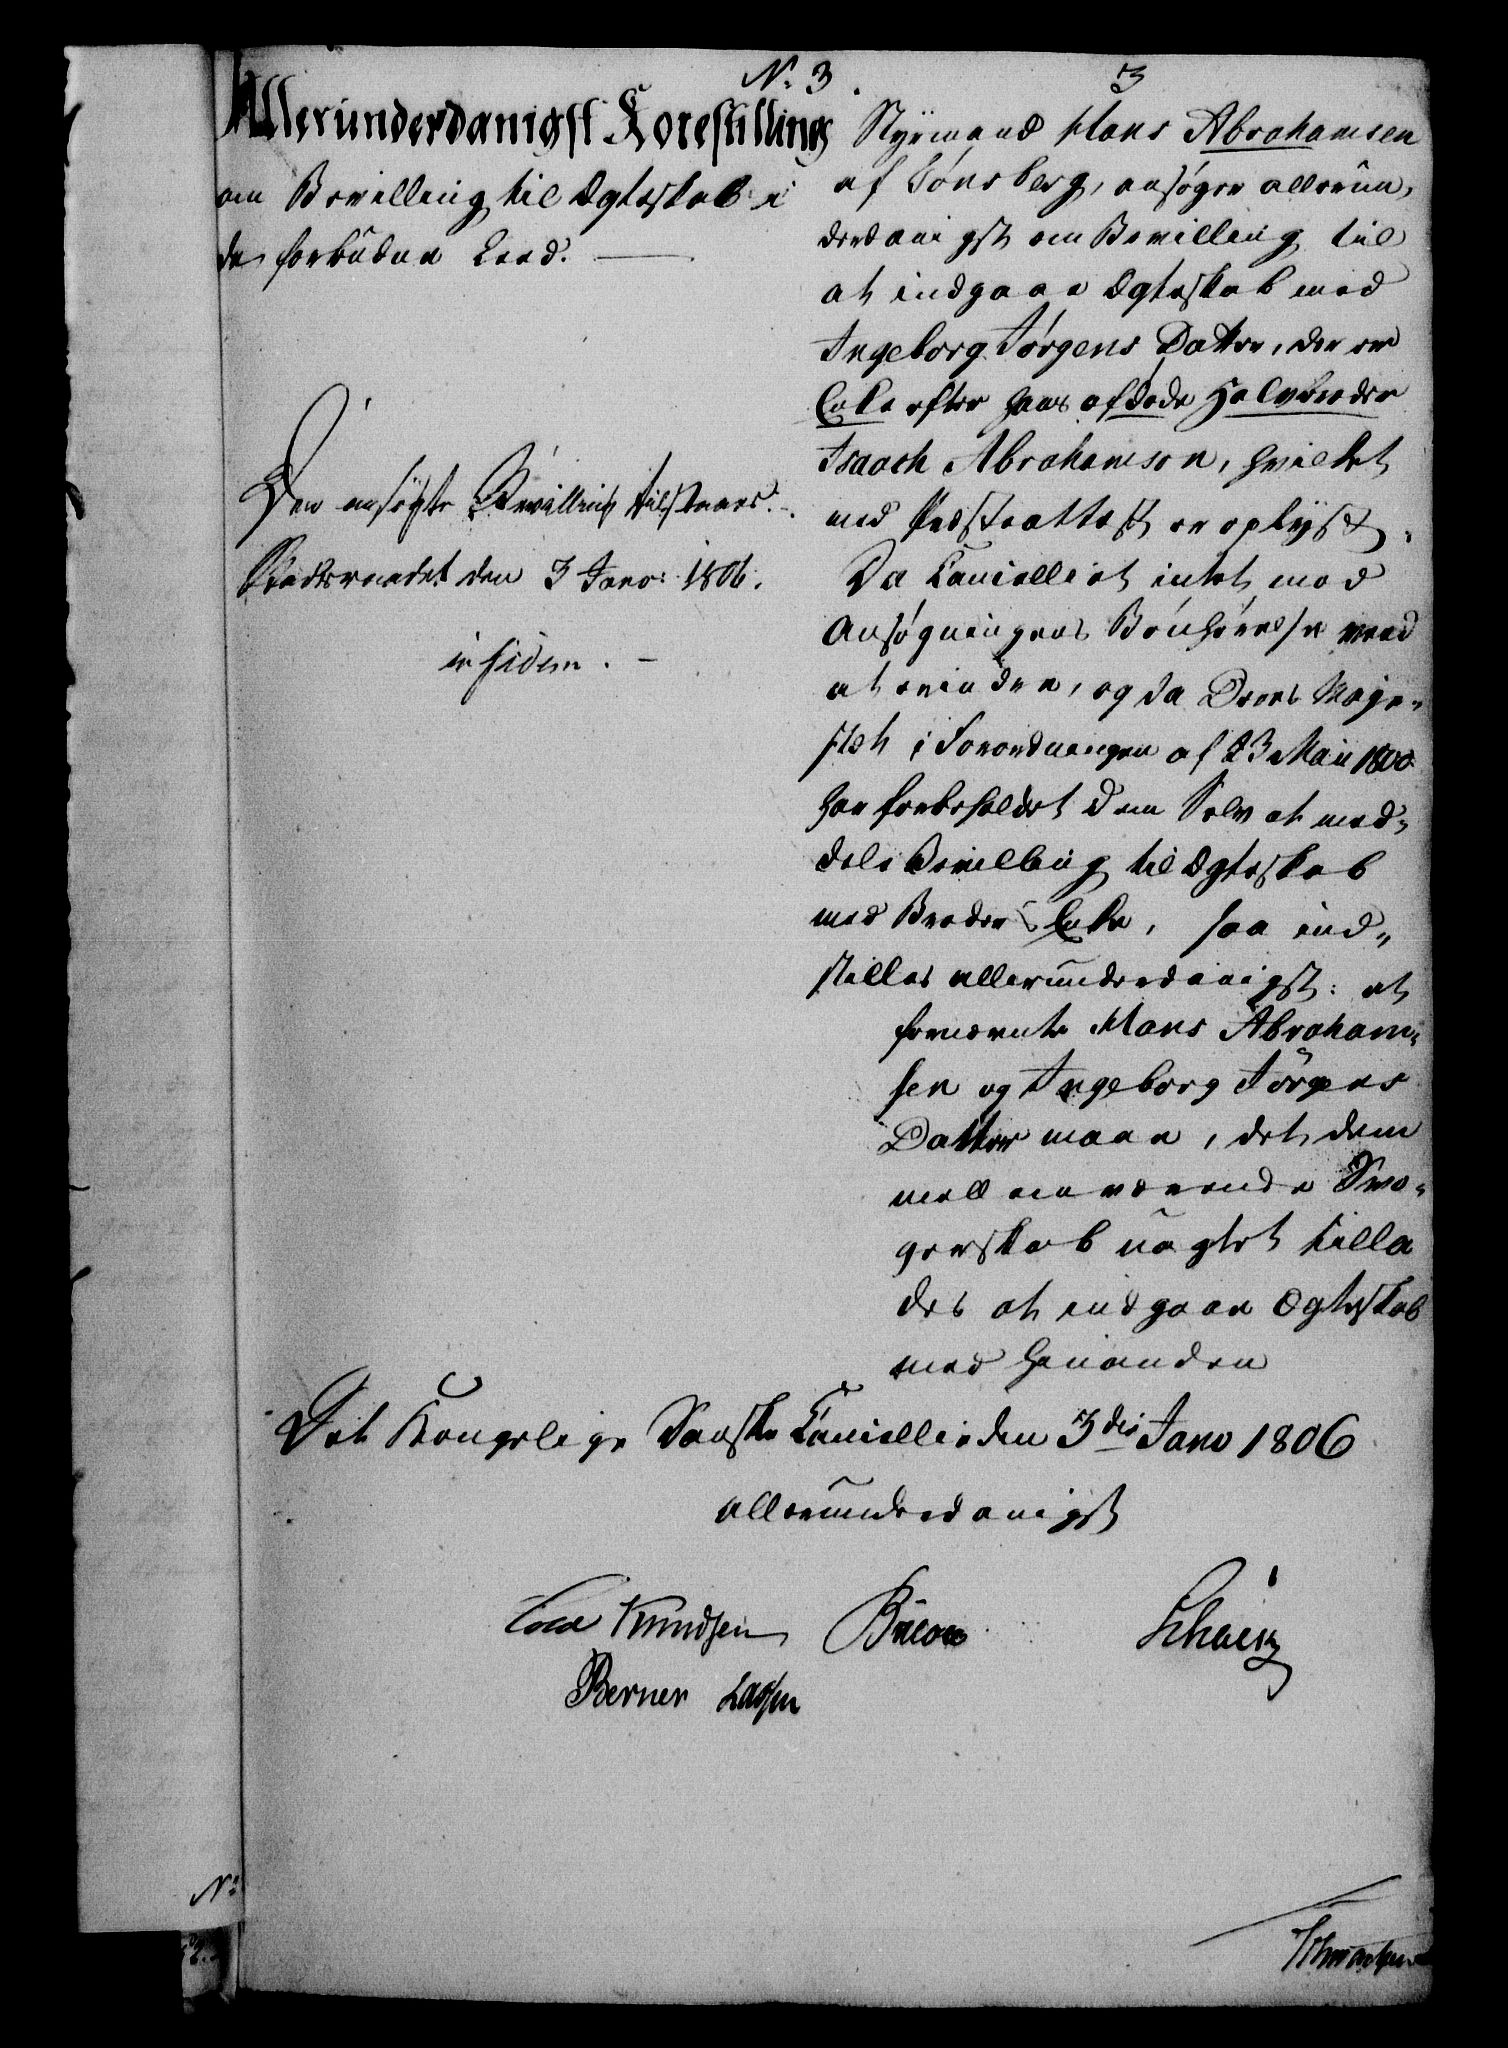 No. 3.
3
Allerunderdanigst Forestilling
om Bevilling til Ægteskab i
de forbudne Leed.
Den ansøgte Bevilling tilstaaes.
Statsraadet den 3 Janr: 1806.
in fidem.
Styrmand Hans Abrahamsen
af Tønsberg, ansøger allerun,
derdanigst om Bevilling til
at indgaae Ægteskab med
Ingeborg Jørgens Datter, der er
Enke efter hans afdøde Halvbroder
Isaach Abrahamsen, hvilket
med Præsteattest er oplyst.
Da Cancelliet intet mod
Ansøgningens Bønhørelse veed
at erindre, og da Deres Maje„
stæt i Forordningen af 23 Maii 1800
har forbeholdet Dem Selv at med„
dele Bevilling til Ægteskab
med Broders Enke, saa ind„
stilles allerunderdanigst: at
fornævnte Hans Abraham„
sen og Ingeborg Jørgens
Datter maae, det dem
mellem værende Svo„
gerskab uagtet tilla
des at indgaae Ægteskab
med hinanden
Det Kongelige Danske Cancellie den 3die Janr 1806
allerunderdanigst
Cold Knudsen Bülow
Berner Lassen